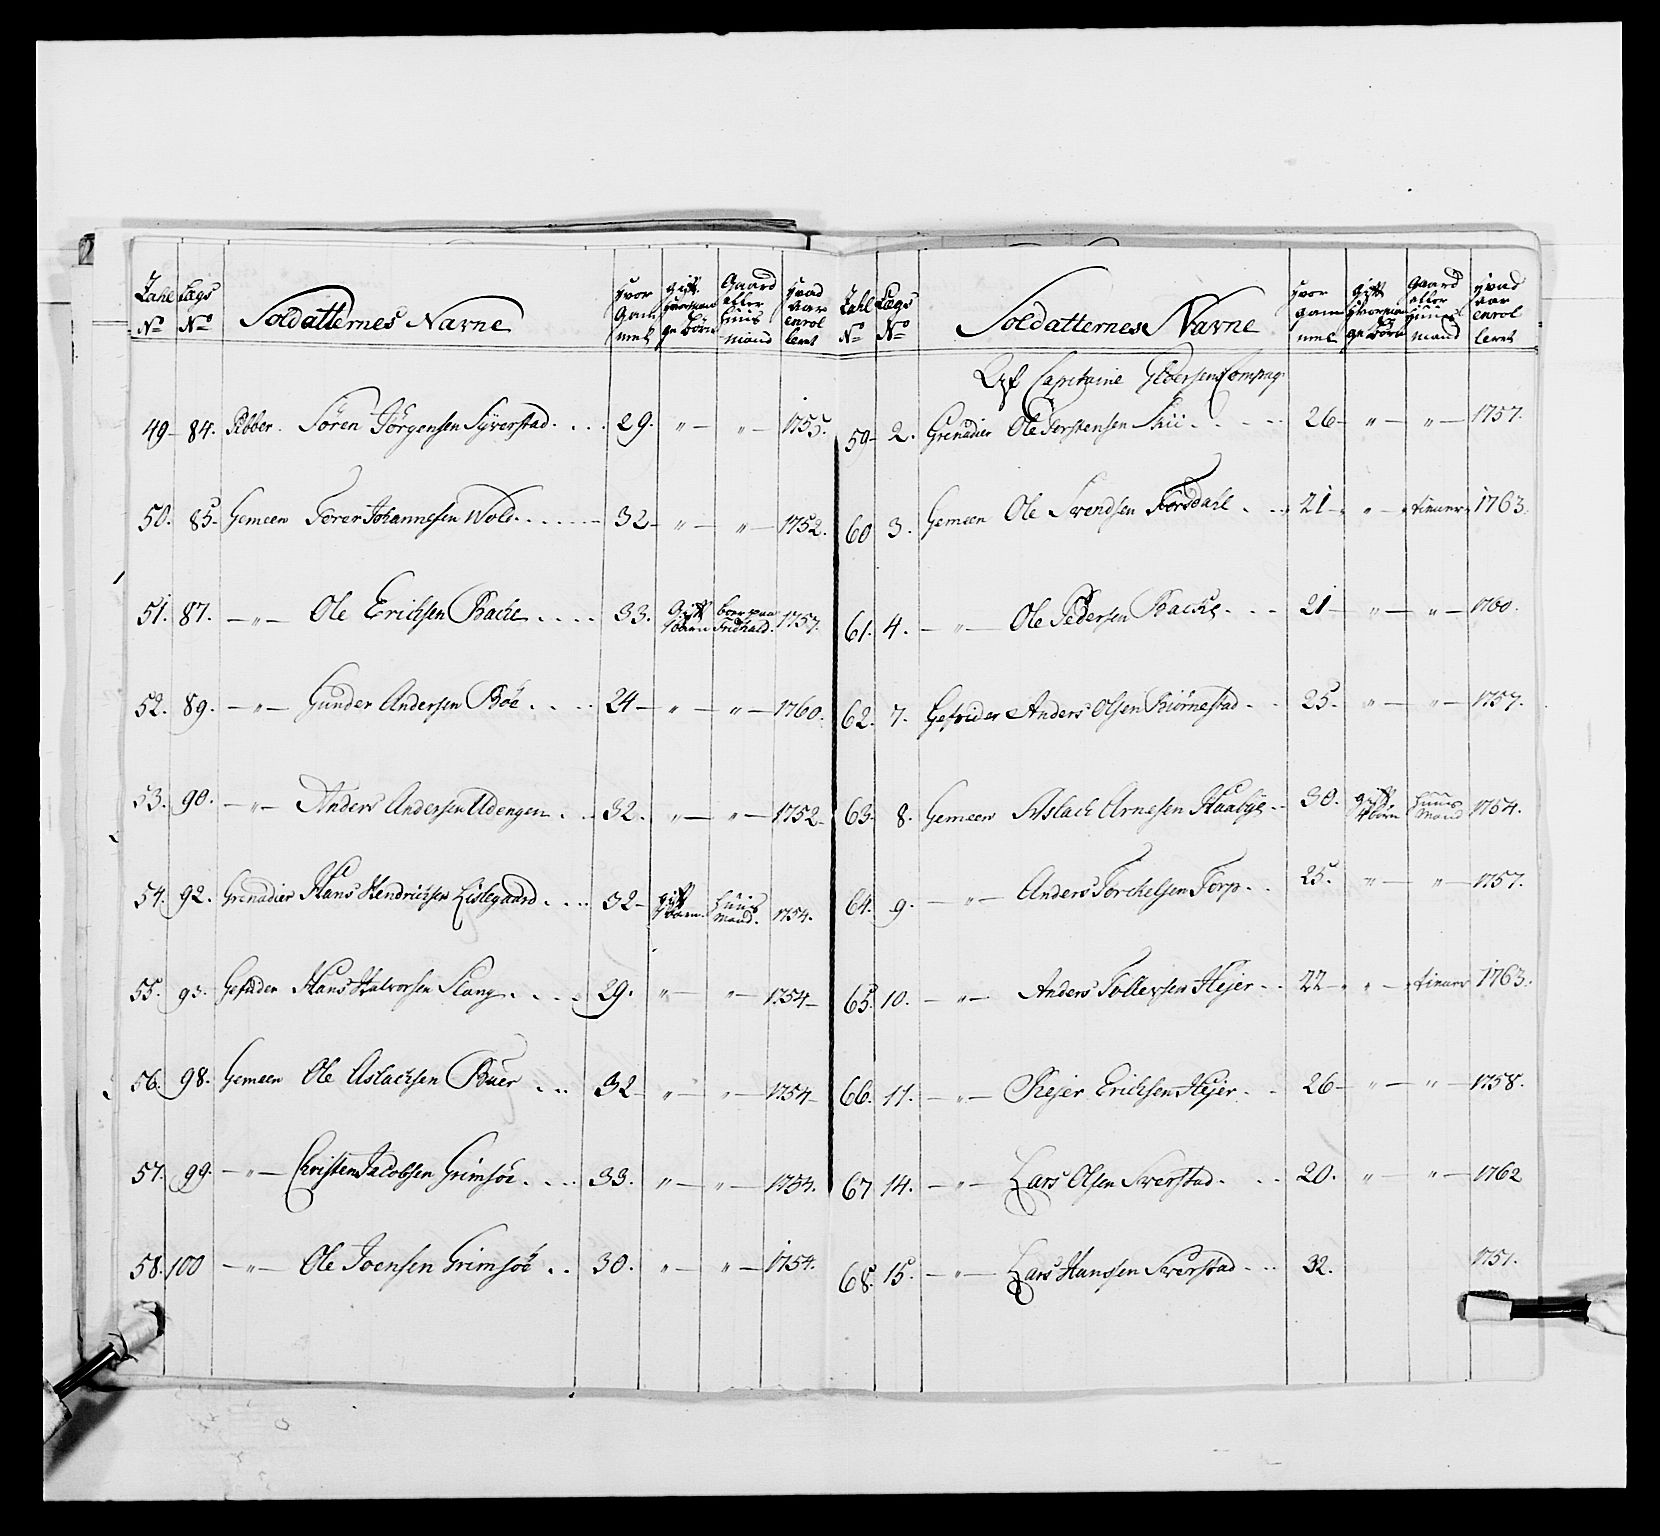 Zahl No | Lægs No | Soldatternes Navne | hvor gam mel | gift hvormen ge börn | Gaard eller huus mand | hvad aar enrol leret
49 | 84. | Pibber. | Sören Jörgensen Syverstad | 29. | " | " | 1755.
50. | 85. | Gemeen | Torer Johannesen Wold | 32 | " | " | 1752.
51. | 87. | " | Ole Erichsen Bache | 33. | Gift 1 barn | boer paa Fridhald. | 1757.
52. | 89. | " | Gunder Andersen Böe | 24 | " | " | 1760.
53. | 90. | " | Anders Andersen Udengen | 32. | " | " | 1752
54. | 92. | Grenadier | Hans Hendrichsen Lislegaard | 32 | gift 1 barn. | huus mand. | 1754.
55. | 93. | Gefrider | Hans Halvorsen Slang | 29. | " | " | 1754
56. | 98. | Gemeen | Ole Aslachsen Buer | 32 | " | " | 1754
57. | 99. | " | Christen Jacobsen Grimsöe | 33. | " | " | 1754.
58. | 100 | " | Ole Joensen Grimsöe | 30. | " | " | 1754.
Zahl No | Lægs No | Soldatternes Navne | hvor gam mel | gift hvorman ge börn | gaard eller huus mand | hvad aar enrol leret
Capitaine Compag:
59 | 2. | Grenadier | Ole Torstensen Skii | 26 | " | " | 1757.
60 | 3. | Gemeen | Ole Svendsen Torsdahl | 21 | " | tiener | 1763.
61. | 4. | " | Ole Pedersen Backe | 21 | " | " | 1760.
62. | 7. | Gefrider | Anders Olsen Biörnestad | 25. | " | " | 1757.
63. | 8. | Gemeen | Aslach Arnesen Haabye | 30. | gift 4 börn | huus mand | 1754.
64. | 9. | " | Anders Torchelsen Torp | 25. | " | " | 1757.
65. | 10. | " | Anders Tollevsen Hejer | 22 | " | tiener | 1763.
66. | 11. | " | Rejer Erichsen Hejer | 26 | " | " | 1758.
67 | 14. | " | Lars Olsen Sverstad | 20. | " | " | 1762
68. | 15. | " | Lars Hansen Sverstad | 32. | 1751.